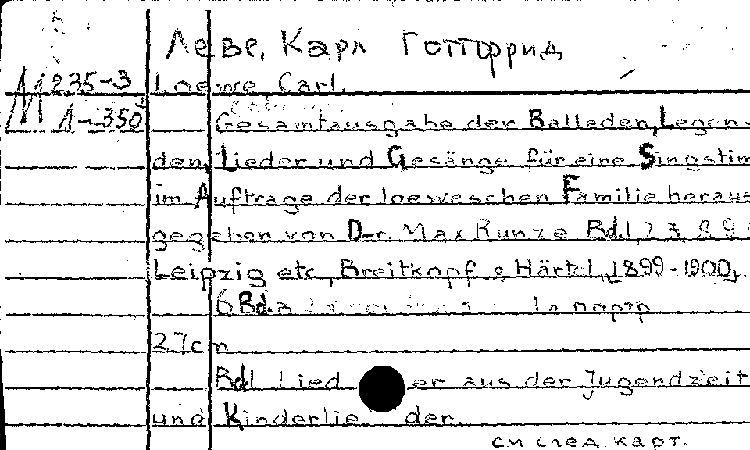 Леве, Карл Готтфрид
М 235-3 Loewe, Carl.
Л-350 Gesamtausgabe der Balladen, Legen-
den, Lieder und Gesänge für eine Singstim
im Auftrage der loeweschen Familie heraus
gegeben von Dr. Max Runze Bd.1,2
Leipzig etc, Breitkopf & Härtel, 1899-1900,
6 Bd.
27cm
Bd1 Lieder aus der Jugendzeit
und Kinderlieder.
см след. карт.